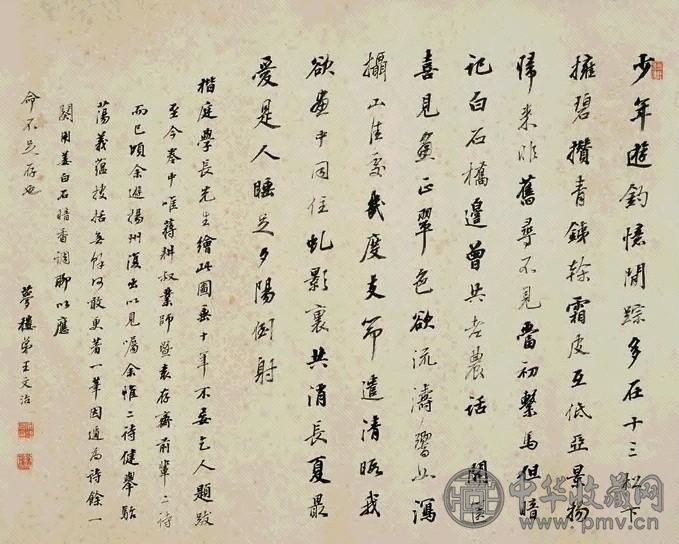 少年遊釣憶閒蹤多在十三松下
擁碧攢青鐵榦霜皮互低亞景物
歸來非舊尋不見當初繫馬但暗
記白石橋邊曾共老農話 閒
喜見正翠色欲流濤響如瀉
攝山佳處幾度支筇遣清暇我
欲畫中同住虬影裏共消長夏最
愛是人睡足夕陽倒射
楷庭學長先生繪此圖垂十年不妄乞人題跋
至今卷中唯蔣耕叔業師暨袁存齋前輩二詩
而已頃余遊揚州復出以見囑余惟二詩健舉駘
蕩義蘊搜括無餘何敢更著一筆因適為詩餘一
闋用姜白石暗香調聊以應
命不足存也
夢樓弟王文治
中华收藏网
www.pmv.cn